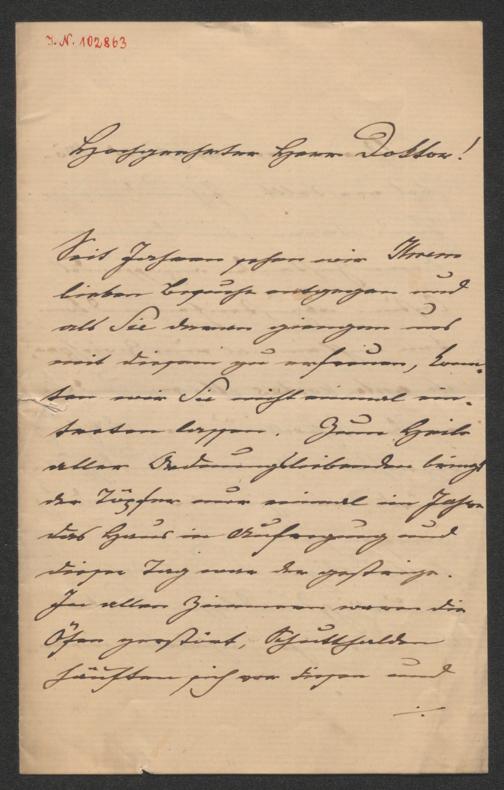 I. N. 102863
Hochgeehrter Herr Doktor!
Seit Jahren sehen wir Ihrem
lieben Besuche entgegen und
als Sie daran giengen uns
mit diesem zu erfreuen, konn-
ten wir Sie nicht einmal ein-
treten lassen. Zum Heile
aller Ordnungsliebenden bringt
der Töpfer nur einmal im Jahre
das Haus in Aufregung und
dieser Tag war der gestrige.
In allen Zimmern waren die
Öfen zerstört, Schutthalden
häuften sich vor diesen und
./.